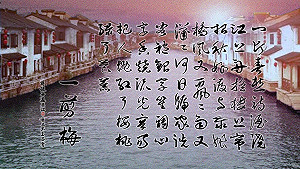 一片春愁待酒浇
江上舟摇楼上帘
招秋娘渡与泰娘
桥风又飘々雨又
潇々何日归家洗
客袍银字笙调心
字香烧流光容易
把人抛红了樱桃
绿了芭蕉
一剪梅